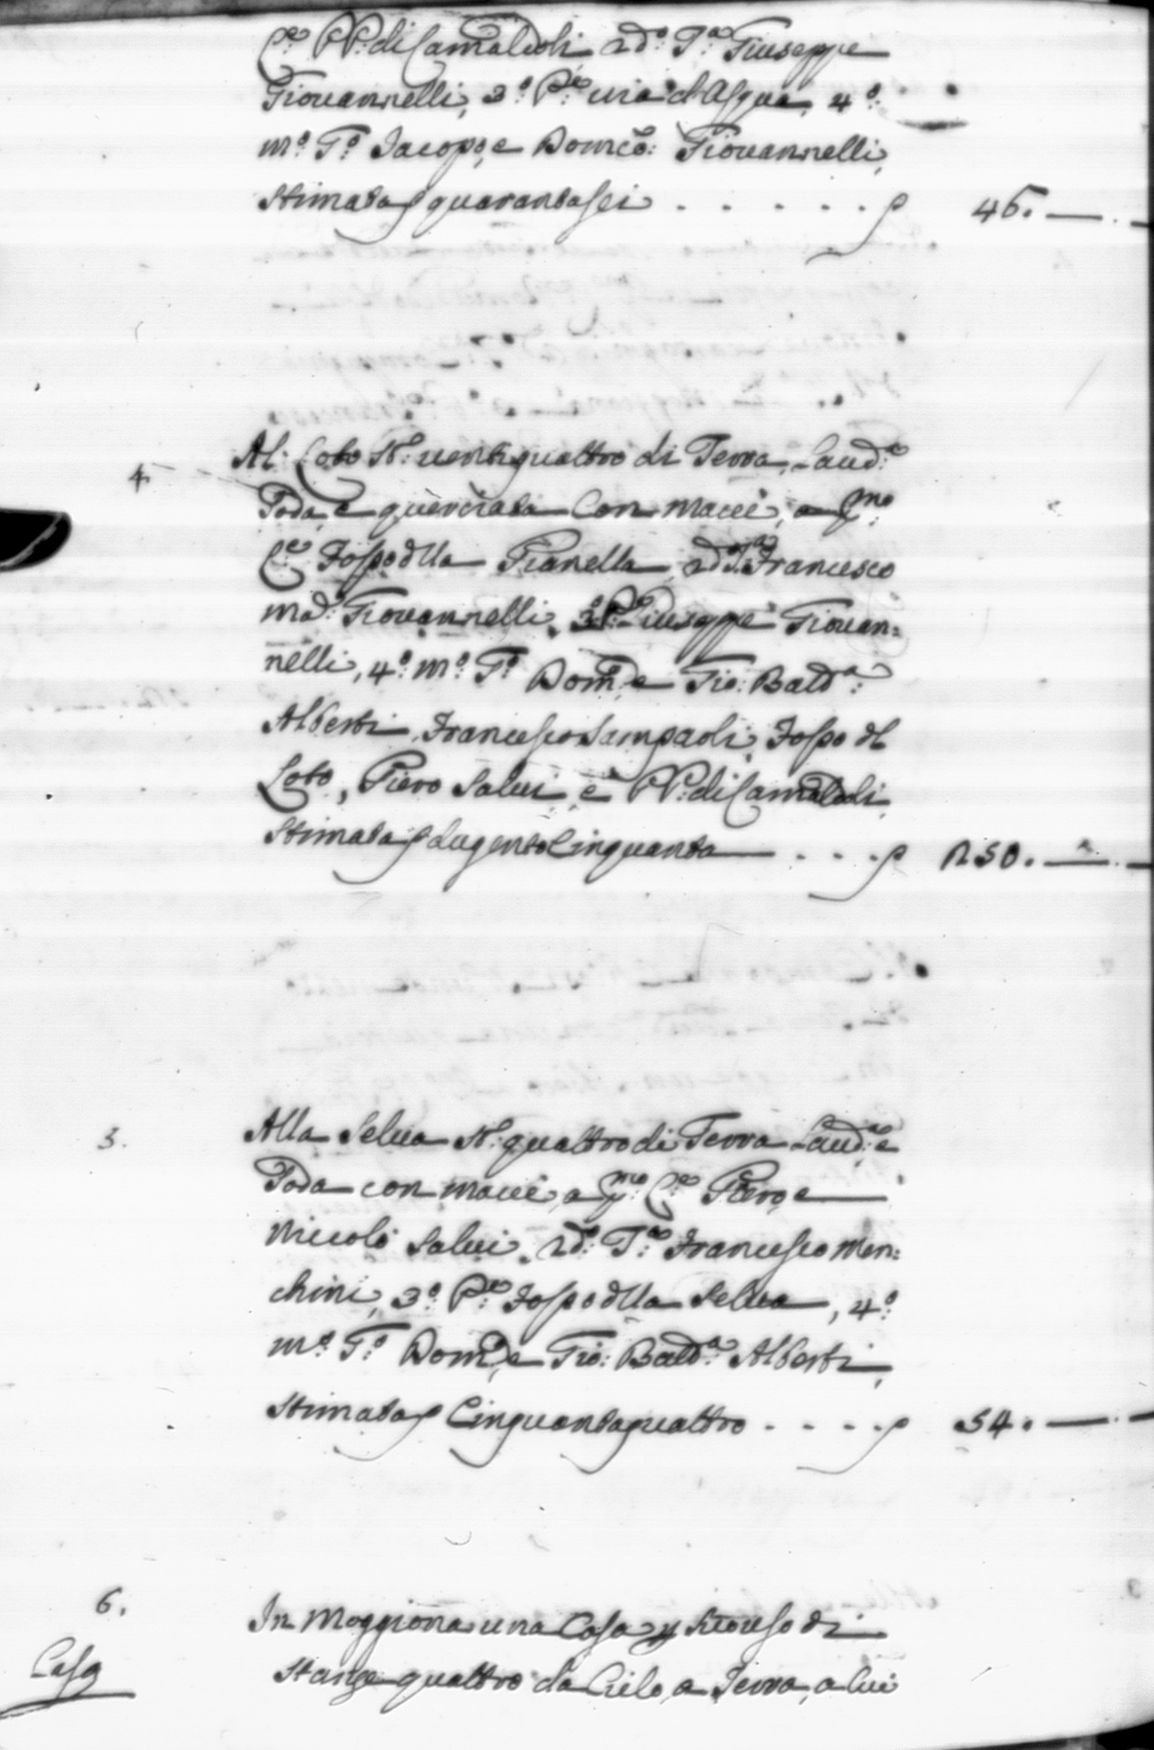 Ce. PP. di Camaldoli 2do. Ta. Giuseppe
Giovannelli, 3o. Pte. via d'Acqua, 4o.
mo. To. Jacopo, e Domco: Giovannelli,
stimata ₰ quarantasei . . . . . . ₰ 46. —
4. Al Loto St: ventiquattro di Terra Laud:a
Soda, e querciata con macie, a pmo.
Ce. Fosso dlla Pianella, 2do. Ta. Francesco
Ma. Giovannelli, 3o. Pte. Giuseppe Giovan=
nelli, 4o. mo. To. Domo. e Gio: Batta:
Alberti, Francesco Sampaoli, Fosso dl
Loto, Piero Salvi, e PP. di Camaldoli,
stimata ₰ dugento Cinquanta . . . ₰ 250. —
5. Alla Selva St: quattro di Terra Laud:a e
Soda con macie, a pmo. Ce. Piero, e
Niccolò Salvi, 2do: Ta. Francesco Men=
chini, 3o. Pte. Fosso dlla Selva, 4o.
mo. To. Domo. e Gio: Batta. Alberti,
stimata ₰ Cinquantaquattro . . . . ₰ 54. —
6. In Moggiona una Casa di
Casa
stanze quattro da Cielo, a Terra, a Cui